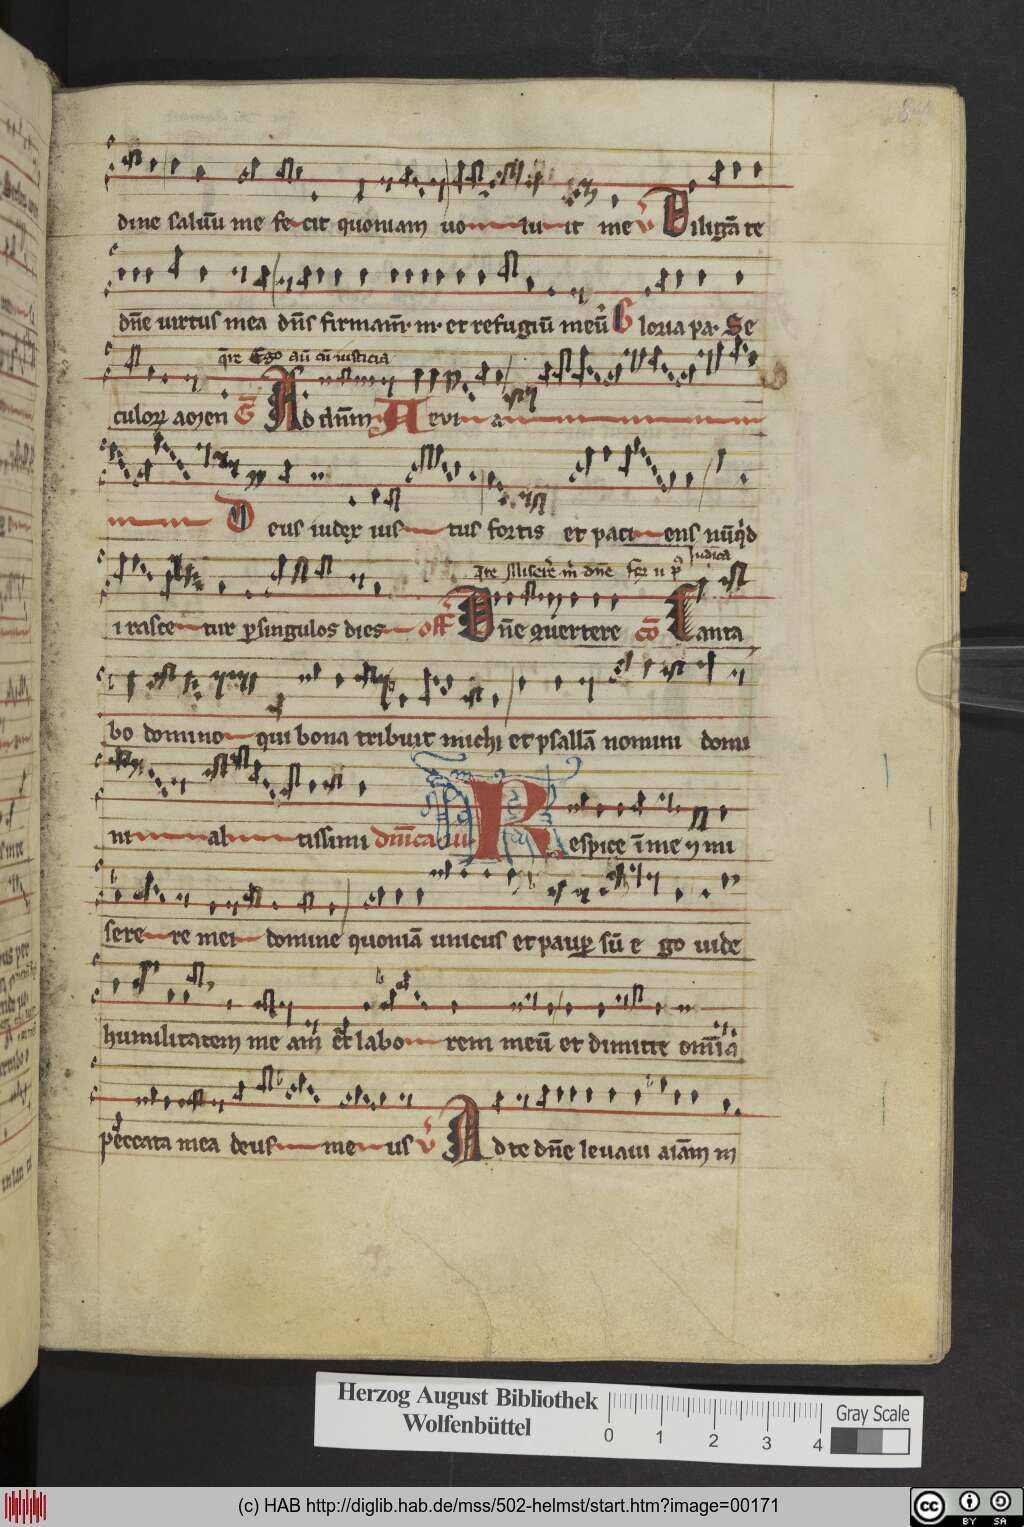 84
dine saluū me fecit quoniam uoluit me V Diligā te
dn̄e uirtus mea dn̄s firmam̄ m̄ et refugiū meū Gloria pa. Se
Ego aū cū iusticia
culorꝝ amen G Ad dn̄m A eui a
Deus iudex iustus fortis et paciens nūq̇d
Ite Misere m̄ dn̄e fer ii Iudica
irascetur ꝑ singulos dies off Dn̄e 9uertere cō Canta
bo domino qui bona tribuit michi et psallā nomini domi
ni altissimi dn̄ica iiii Respice ī me ⁊ mi
serere mei domine quoniā unicus et paup̱ sū ego uide
humilitatem meam̄ et laborem meū et dimitte om̄ia
peccata mea deus meus V Ad te dn̄e leuaui aīam m
Herzog August Bibliothek
Wolfenbüttel
0 1 2 3 4
Gray Scale
(c) HAB http://diglib.hab.de/mss/502-helmst/start.htm?image=00171
cc BY SA